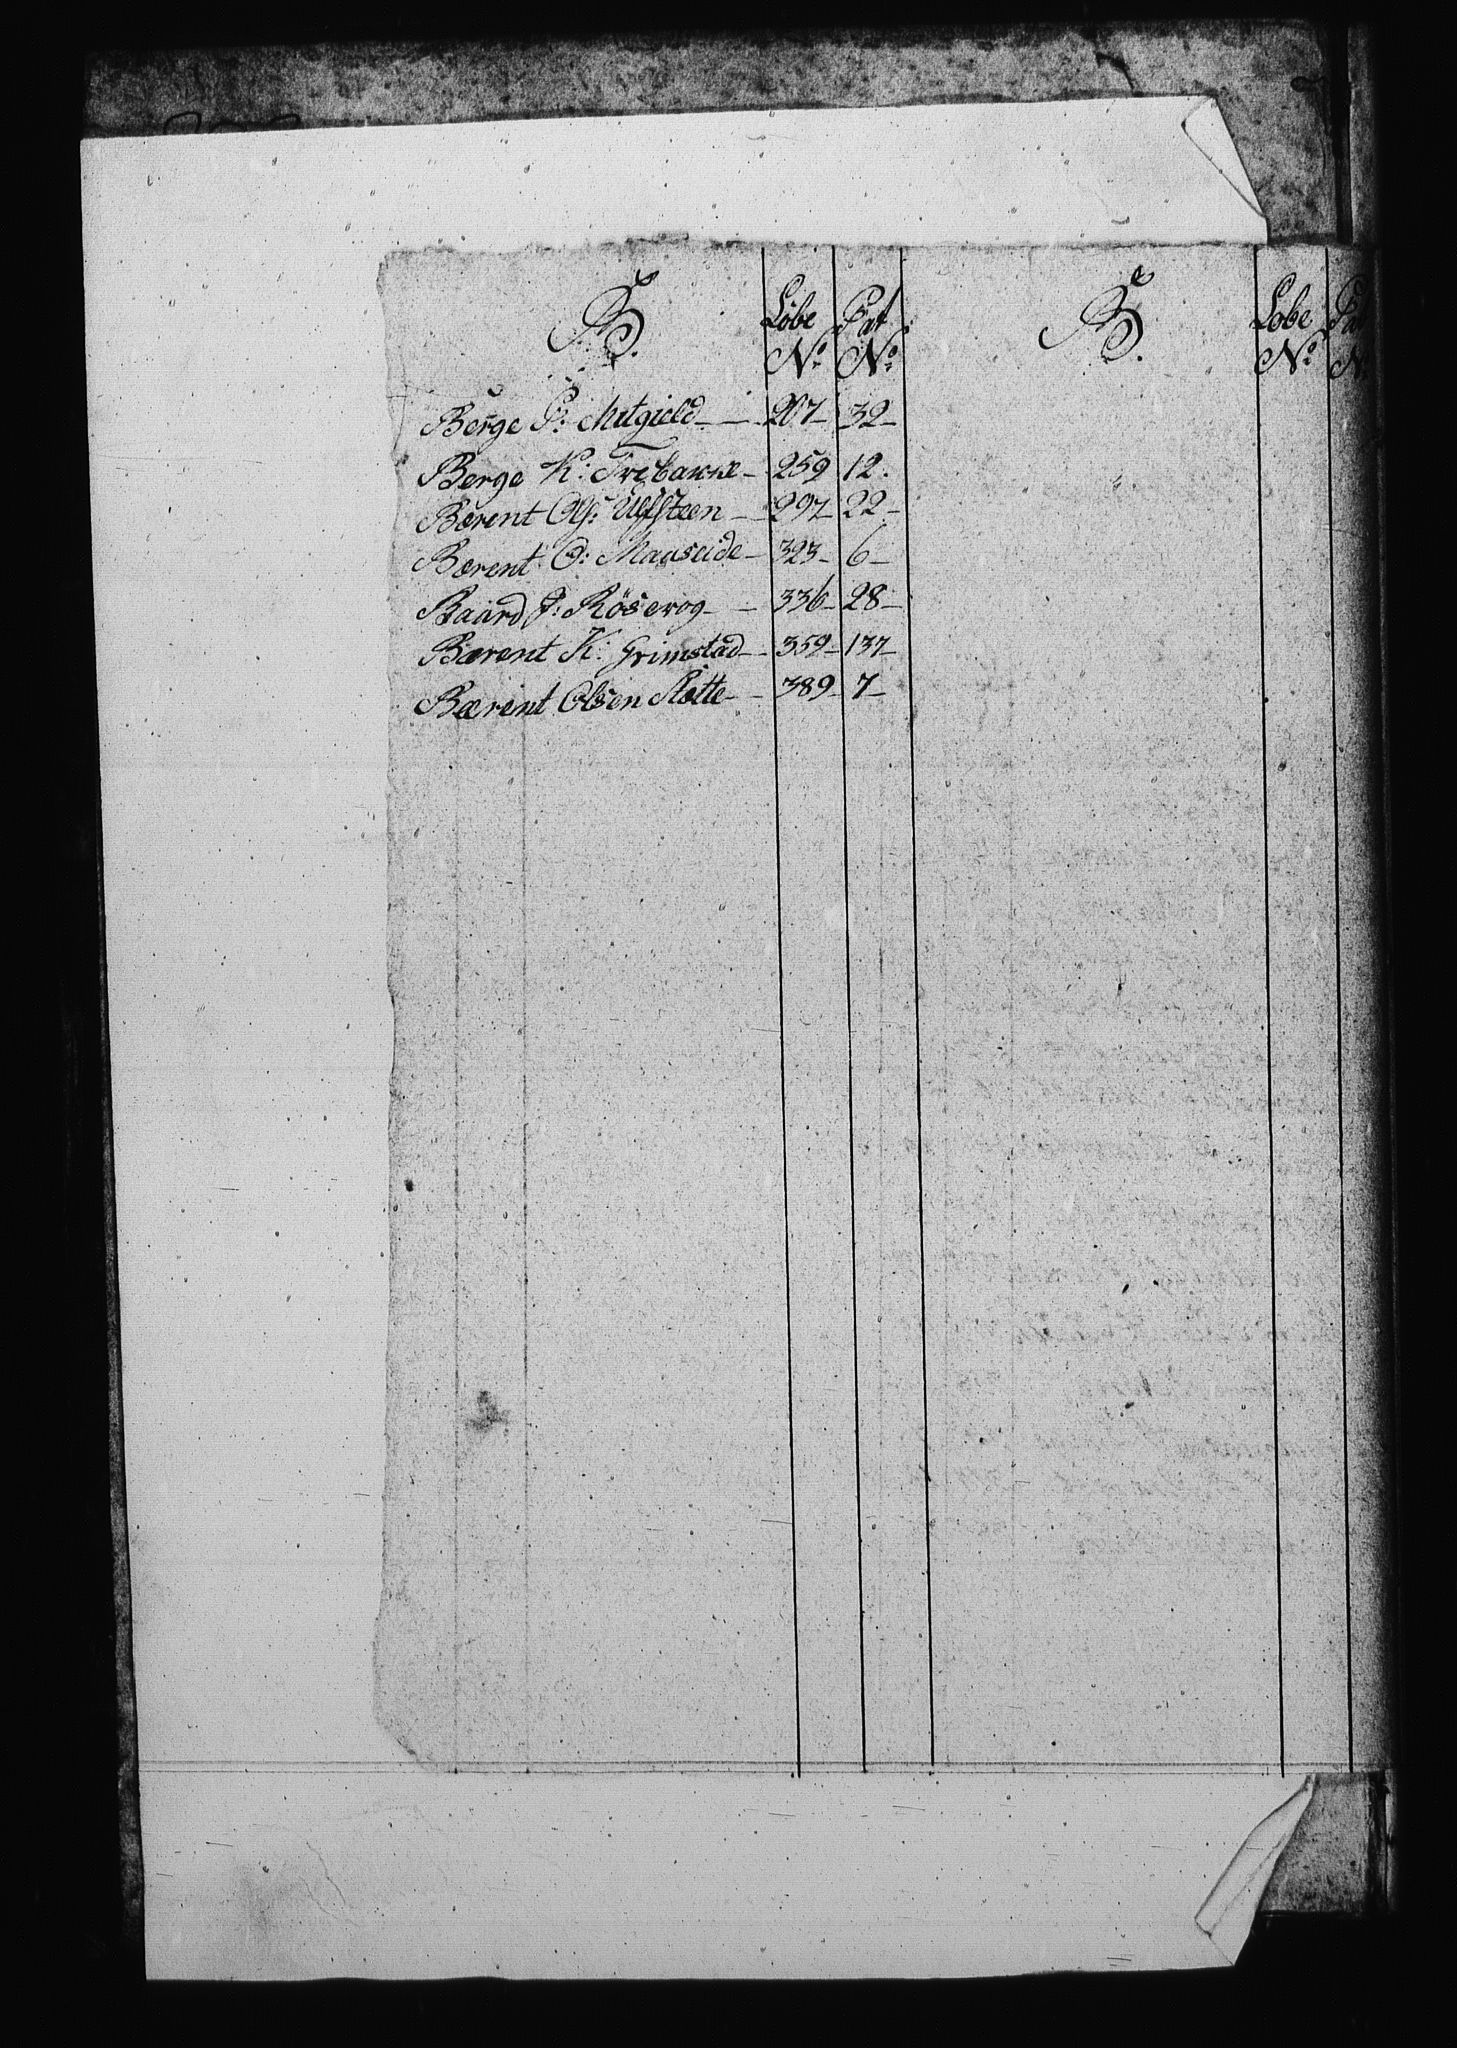 B. Löbe Pat B. Löbe Pat
No No No N
Berge P: Mitgield 207 32
Berge K: Trebakke 259 12.
Bærent Ols: Ulfsteen 297 22
Bærent O: Maaseide 323 6
Baard J: Rösevog 336 28
Bærent K: Grimstad 359 137
Bærent Olsen Slotte 389 7